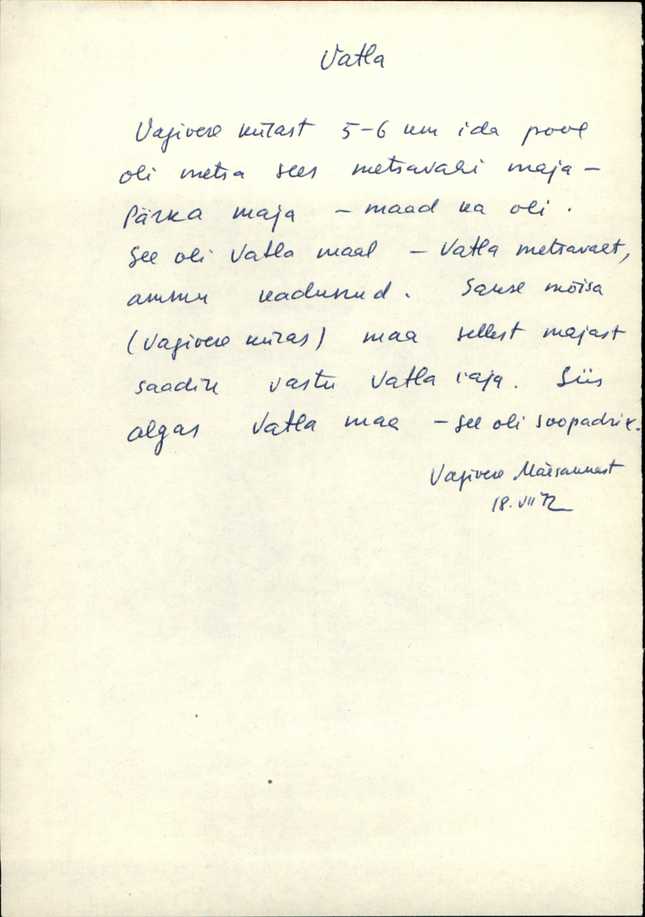 Vatla
Vagivere külast 5-6 km ida poole
oli metsa sees metsavahi maja -
Pärna maja - maad ka oli.
See oli Vatla maal - Vatla metsavaht,
ammu kadunud. Sause mõisa
(Vagivere külas) maa sellest majast
saadik vastu Vatla raja. Siis
algas Vatla maa - see oli soopadrik.
Vagivere
18.VII 72